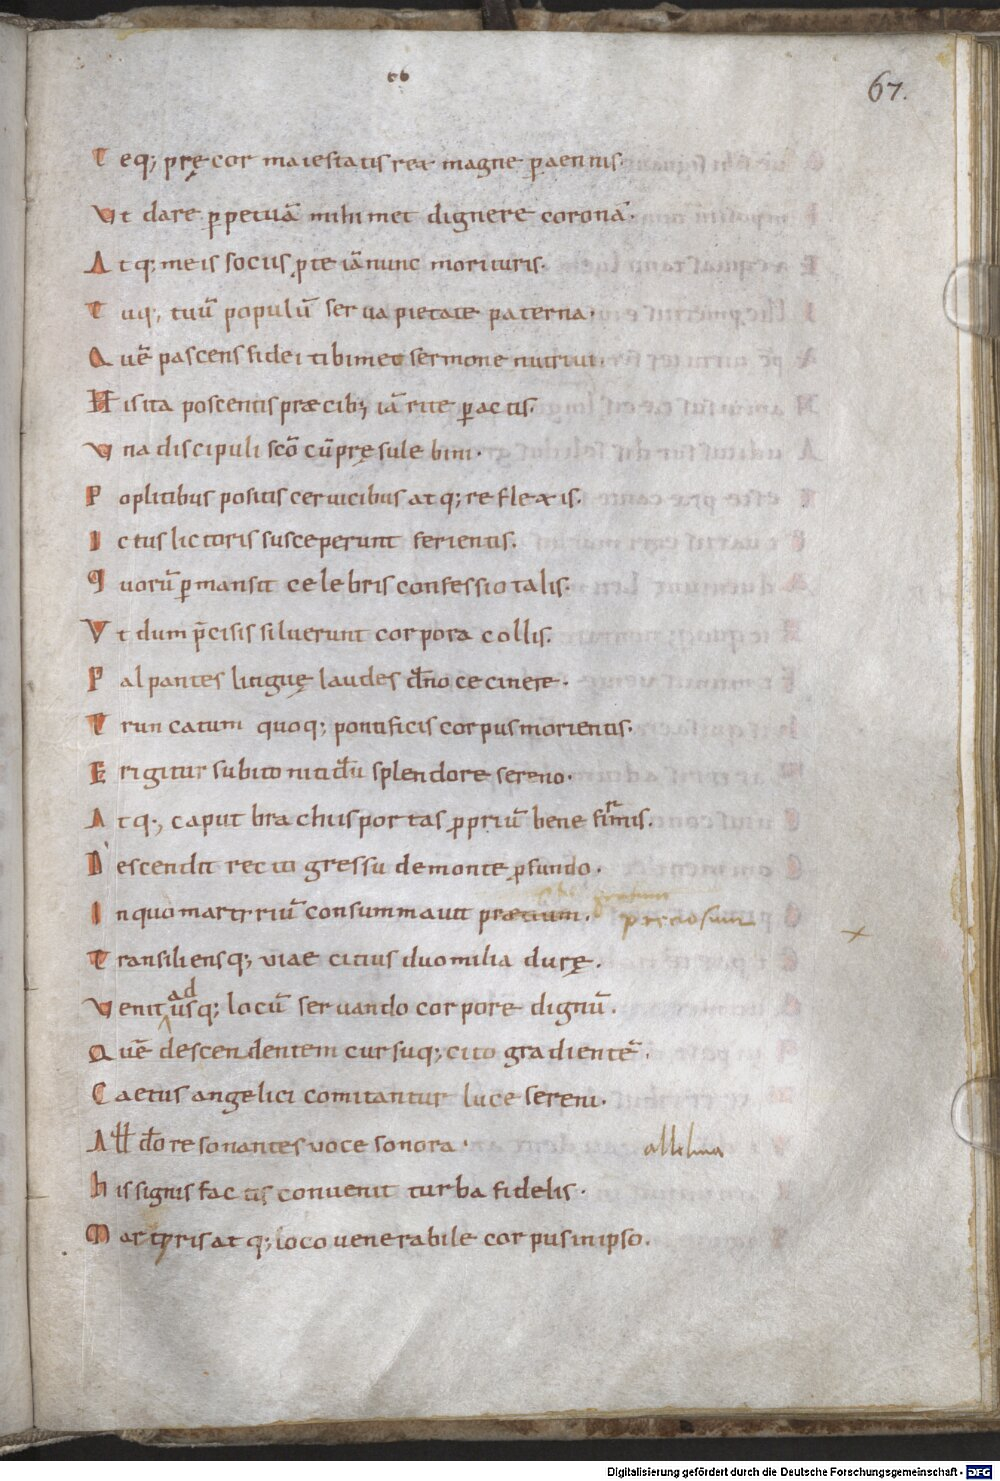 67.
Teq; pręcor maiestatis rex magne p̱aennis
Vt dare p̱petuā mihimet dignere coronā.
Atq; meis sociis ꝓ te iā nunc morituris.
Tuq; tuū populū serua pietate paterna.
Quē pascens fidei tibimet sermone nutriui.
His ita poscentis præcib; iā rite p̱actis.
Vna discipuli scō cū pręsule bini.
Poplitibus positis ceruicibus atq; reflexis.
Ictus lictoris susceperunt ferientis.
Quorū p̱mansit celebris confessio talis.
Vt dum p̄cisis siluerunt corpora collis.
Palpantes linguę laudes dn̄o cecinere.
Truncatum quoq; pontificis corpus morientis.
Erigitur subito nitidū splendore sereno.
Atq; caput brachiis portas ꝓpriū bene firmis.
Descendit recto gressu de monte ꝓfundo.
In quo martyriū consummauit prætium. preciosum
Transiliensq; viae citius duo milia durę.
Venit ad usq; locū seruando corpore dignū.
Quē descendentem cursuq; cito gradientē.
Caetus angelici comitantur luce sereni.
All dō resonantes uoce sonora. alleluia
His signis factis conuenit turba fidelis.
Martyris atq; loco uenerabile corpus in ipso.
Digitalisierung gefördert durch die Deutsche Forschungsgemeinschaft - DFG